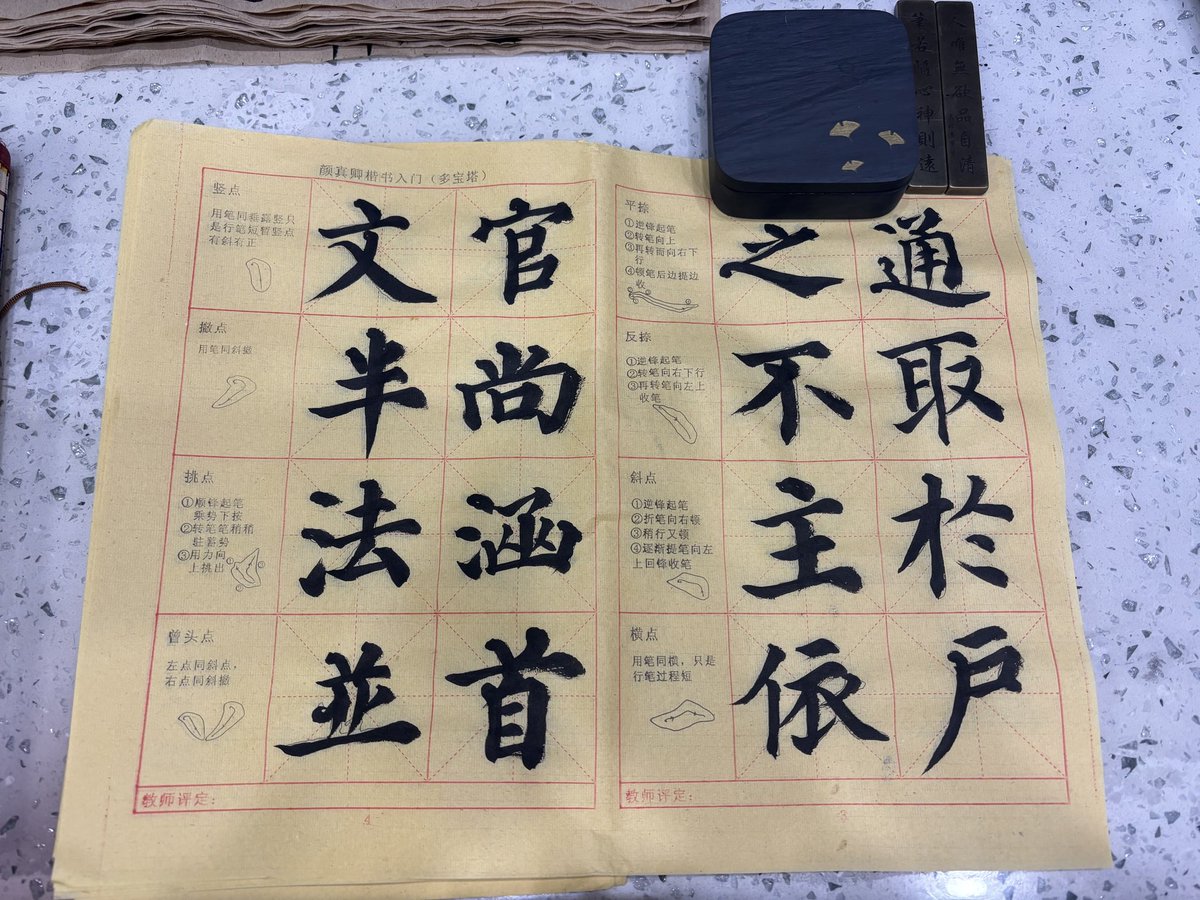 颜真卿楷书入门（多宝塔）
竖点
用笔同垂露竖只
是行笔短暂竖点
有斜有正
文 官
撇点
用笔同斜撇
半 尚
挑点
①顺锋起笔
乘势下按
②转笔笔稍稍
驻蓄势
③用力向
上挑出
法 涵
曾头点
左点同斜点，
右点同斜撇
並 首
教师评定：
4
平捺
①逆锋起笔
②转笔向上
③再转而向右下
行
④顿笔后边提边
收
之 通
反捺
①逆锋起笔
②转笔向右下行
③再转笔向左上
收笔
不 取
斜点
①逆锋起笔
②折笔向右顿
③稍行又顿
④逐渐提笔向左
上回锋收笔
主 於
横点
用笔同横，只是
行笔过程短
依 戶
教师评定：
3
人唯無欲品自清
筆若随心神則遠